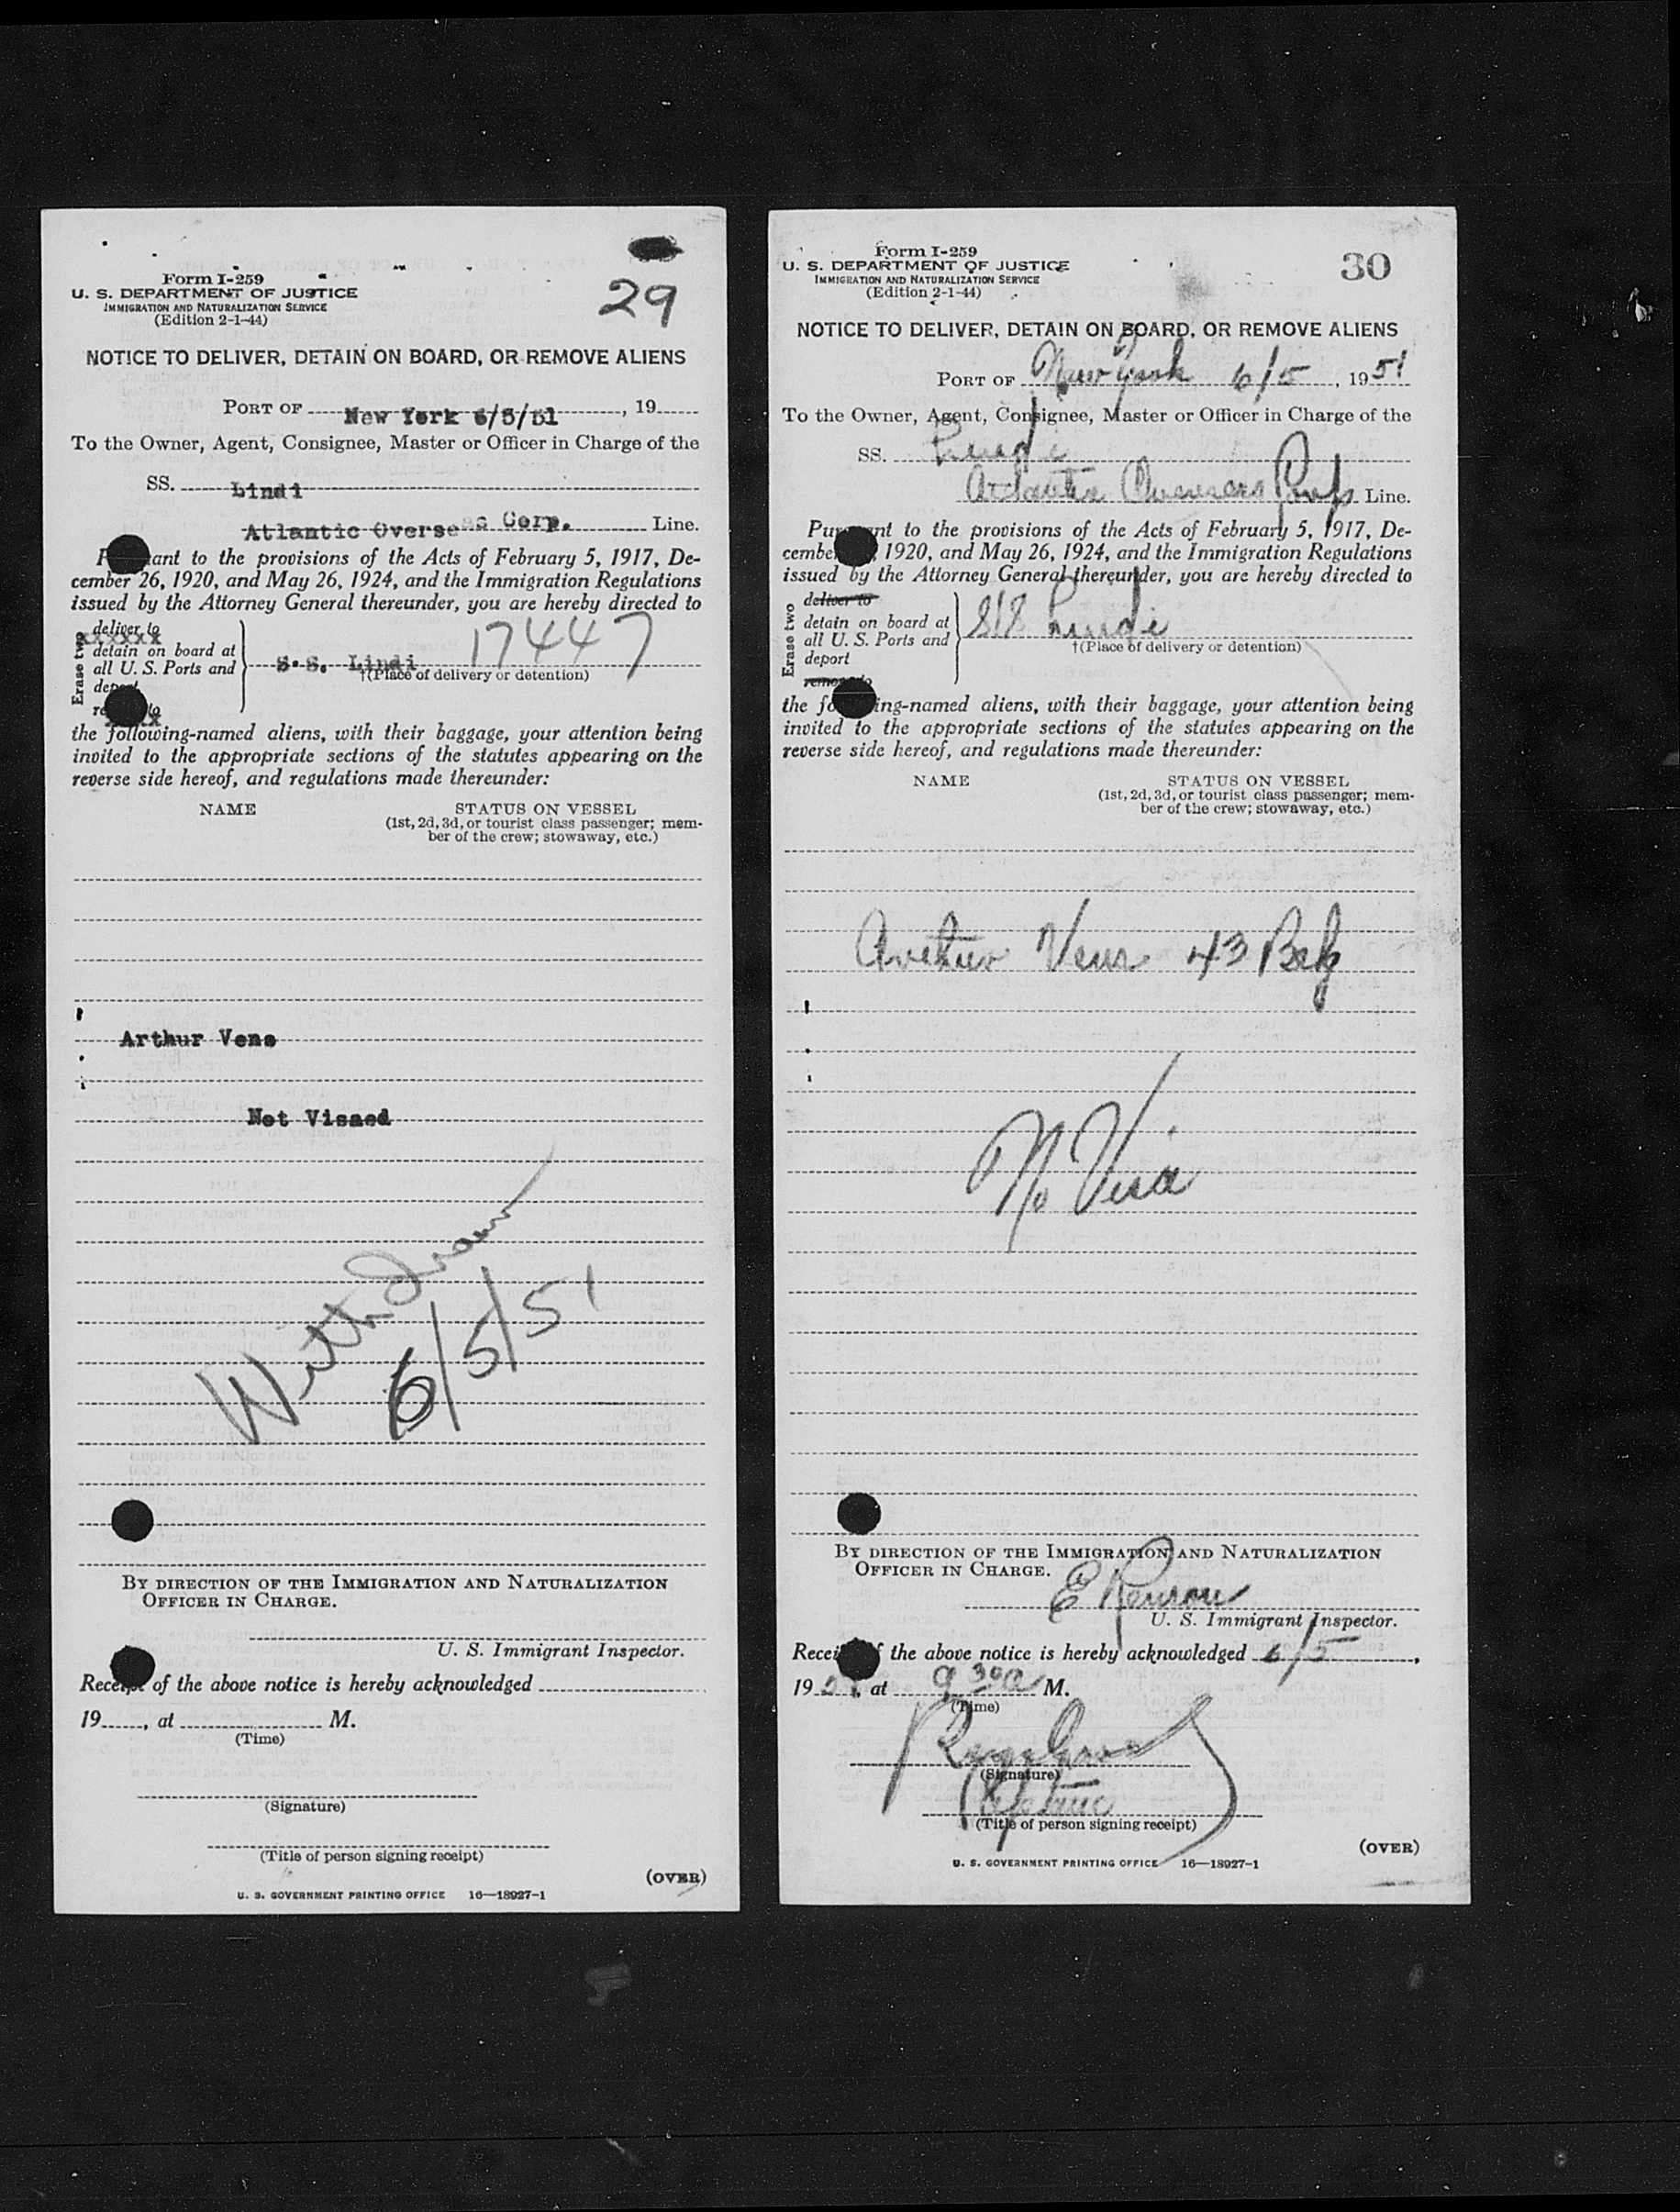 Form I-259
U. S. DEPARTMENT OF JUSTICE
IMMIGRATION AND NATURALIZATION SERVICE
(Edition 2-1-44)
29
NOTICE TO DELIVER, DETAIN ON BOARD, OR REMOVE ALIENS
PORT OF New York 6/5/51, 19
To the Owner, Agent, Consignee, Master or Officer in Charge of the
SS. Lindi
Atlantic Overseas Corp. Line.
ant to the provisions of the Acts of February 5, 1917, De-
cember 26, 1920, and May 26, 1924, and the Immigration Regulations
issued by the Attorney General thereunder, you are hereby directed to
Erase two
deliver to
detain on board at
all U. S. Ports and
S. S. Lindi 17447
†(Place of delivery or detention)
the following-named aliens, with their baggage, your attention being
invited to the appropriate sections of the statutes appearing on the
reverse side hereof, and regulations made thereunder:
NAME STATUS ON VESSEL
(1st, 2d, 3d, or tourist class passenger; mem-
ber of the crew; stowaway, etc.)
Arthur Vens
Not Visaed
Withdrawn
6/5/51
BY DIRECTION OF THE IMMIGRATION AND NATURALIZATION
OFFICER IN CHARGE.
U. S. Immigrant Inspector.
Receipt of the above notice is hereby acknowledged
19, at M.
(Time)
(Signature)
(Title of person signing receipt)
(OVER)
U. S. GOVERNMENT PRINTING OFFICE 16—18927-1
Form I-259
U. S. DEPARTMENT OF JUSTICE
IMMIGRATION AND NATURALIZATION SERVICE
(Edition 2-1-44)
30
NOTICE TO DELIVER, DETAIN ON BOARD, OR REMOVE ALIENS
PORT OF New York 6/5, 1951
To the Owner, Agent, Consignee, Master or Officer in Charge of the
SS. Lindi
Atlantic Overseas Corp Line.
Pursuant to the provisions of the Acts of February 5, 1917, De-
cember 1920, and May 26, 1924, and the Immigration Regulations
issued by the Attorney General thereunder, you are hereby directed to
Erase two
deliver to
detain on board at
all U. S. Ports and
deport
remove to
S/S Lindi
†(Place of delivery or detention)
the following-named aliens, with their baggage, your attention being
invited to the appropriate sections of the statutes appearing on the
reverse side hereof, and regulations made thereunder:
NAME STATUS ON VESSEL
(1st, 2d, 3d, or tourist class passenger; mem-
ber of the crew; stowaway, etc.)
Arthur Vens 43 Belg
No Visa
BY DIRECTION OF THE IMMIGRATION AND NATURALIZATION
OFFICER IN CHARGE.
U. S. Immigrant Inspector.
Receipt of the above notice is hereby acknowledged 6/5,
1951, at 9 30 a M.
(Time)
(Signature)
(Title of person signing receipt)
(OVER)
U. S. GOVERNMENT PRINTING OFFICE 16—18927-1